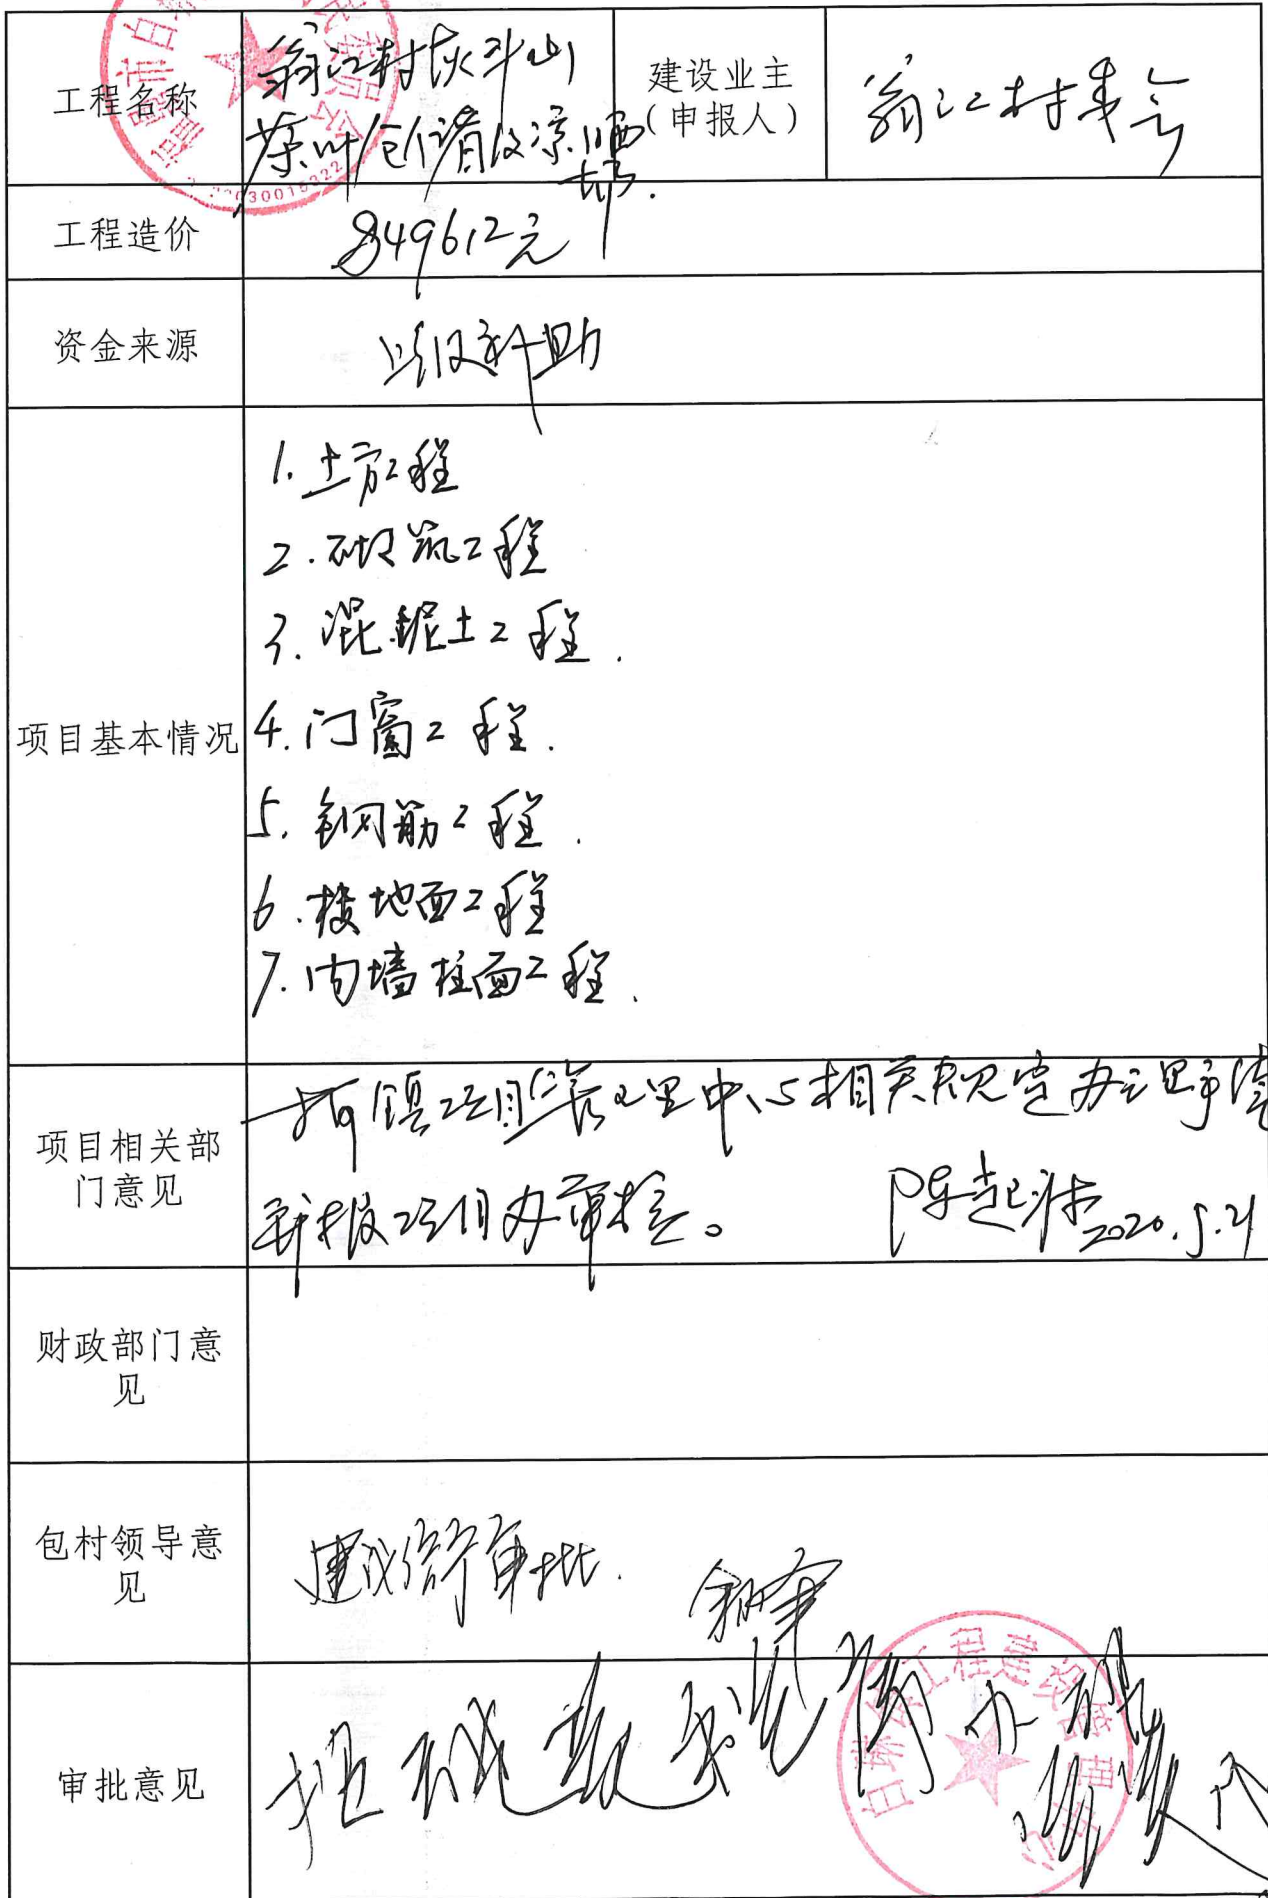 工程名称
翁江村灰斗山
茶叶仓储及凉晒
棚.
建设业主
(申报人)
翁江村委会
工程造价
849612元
资金来源
上级补助
项目基本情况
1.土方工程
2.砌筑工程
3.混凝土工程.
4.门窗工程.
5.钢筋工程.
6.楼地面工程
7.内墙柱面工程.
项目相关部
门意见
按镇项目管理中心相关规定办理手续
并报项目办审核。
2020.5.21
财政部门意
见
包村领导意
见
建议给予审批.
审批意见
白琳镇工程建设管理办公